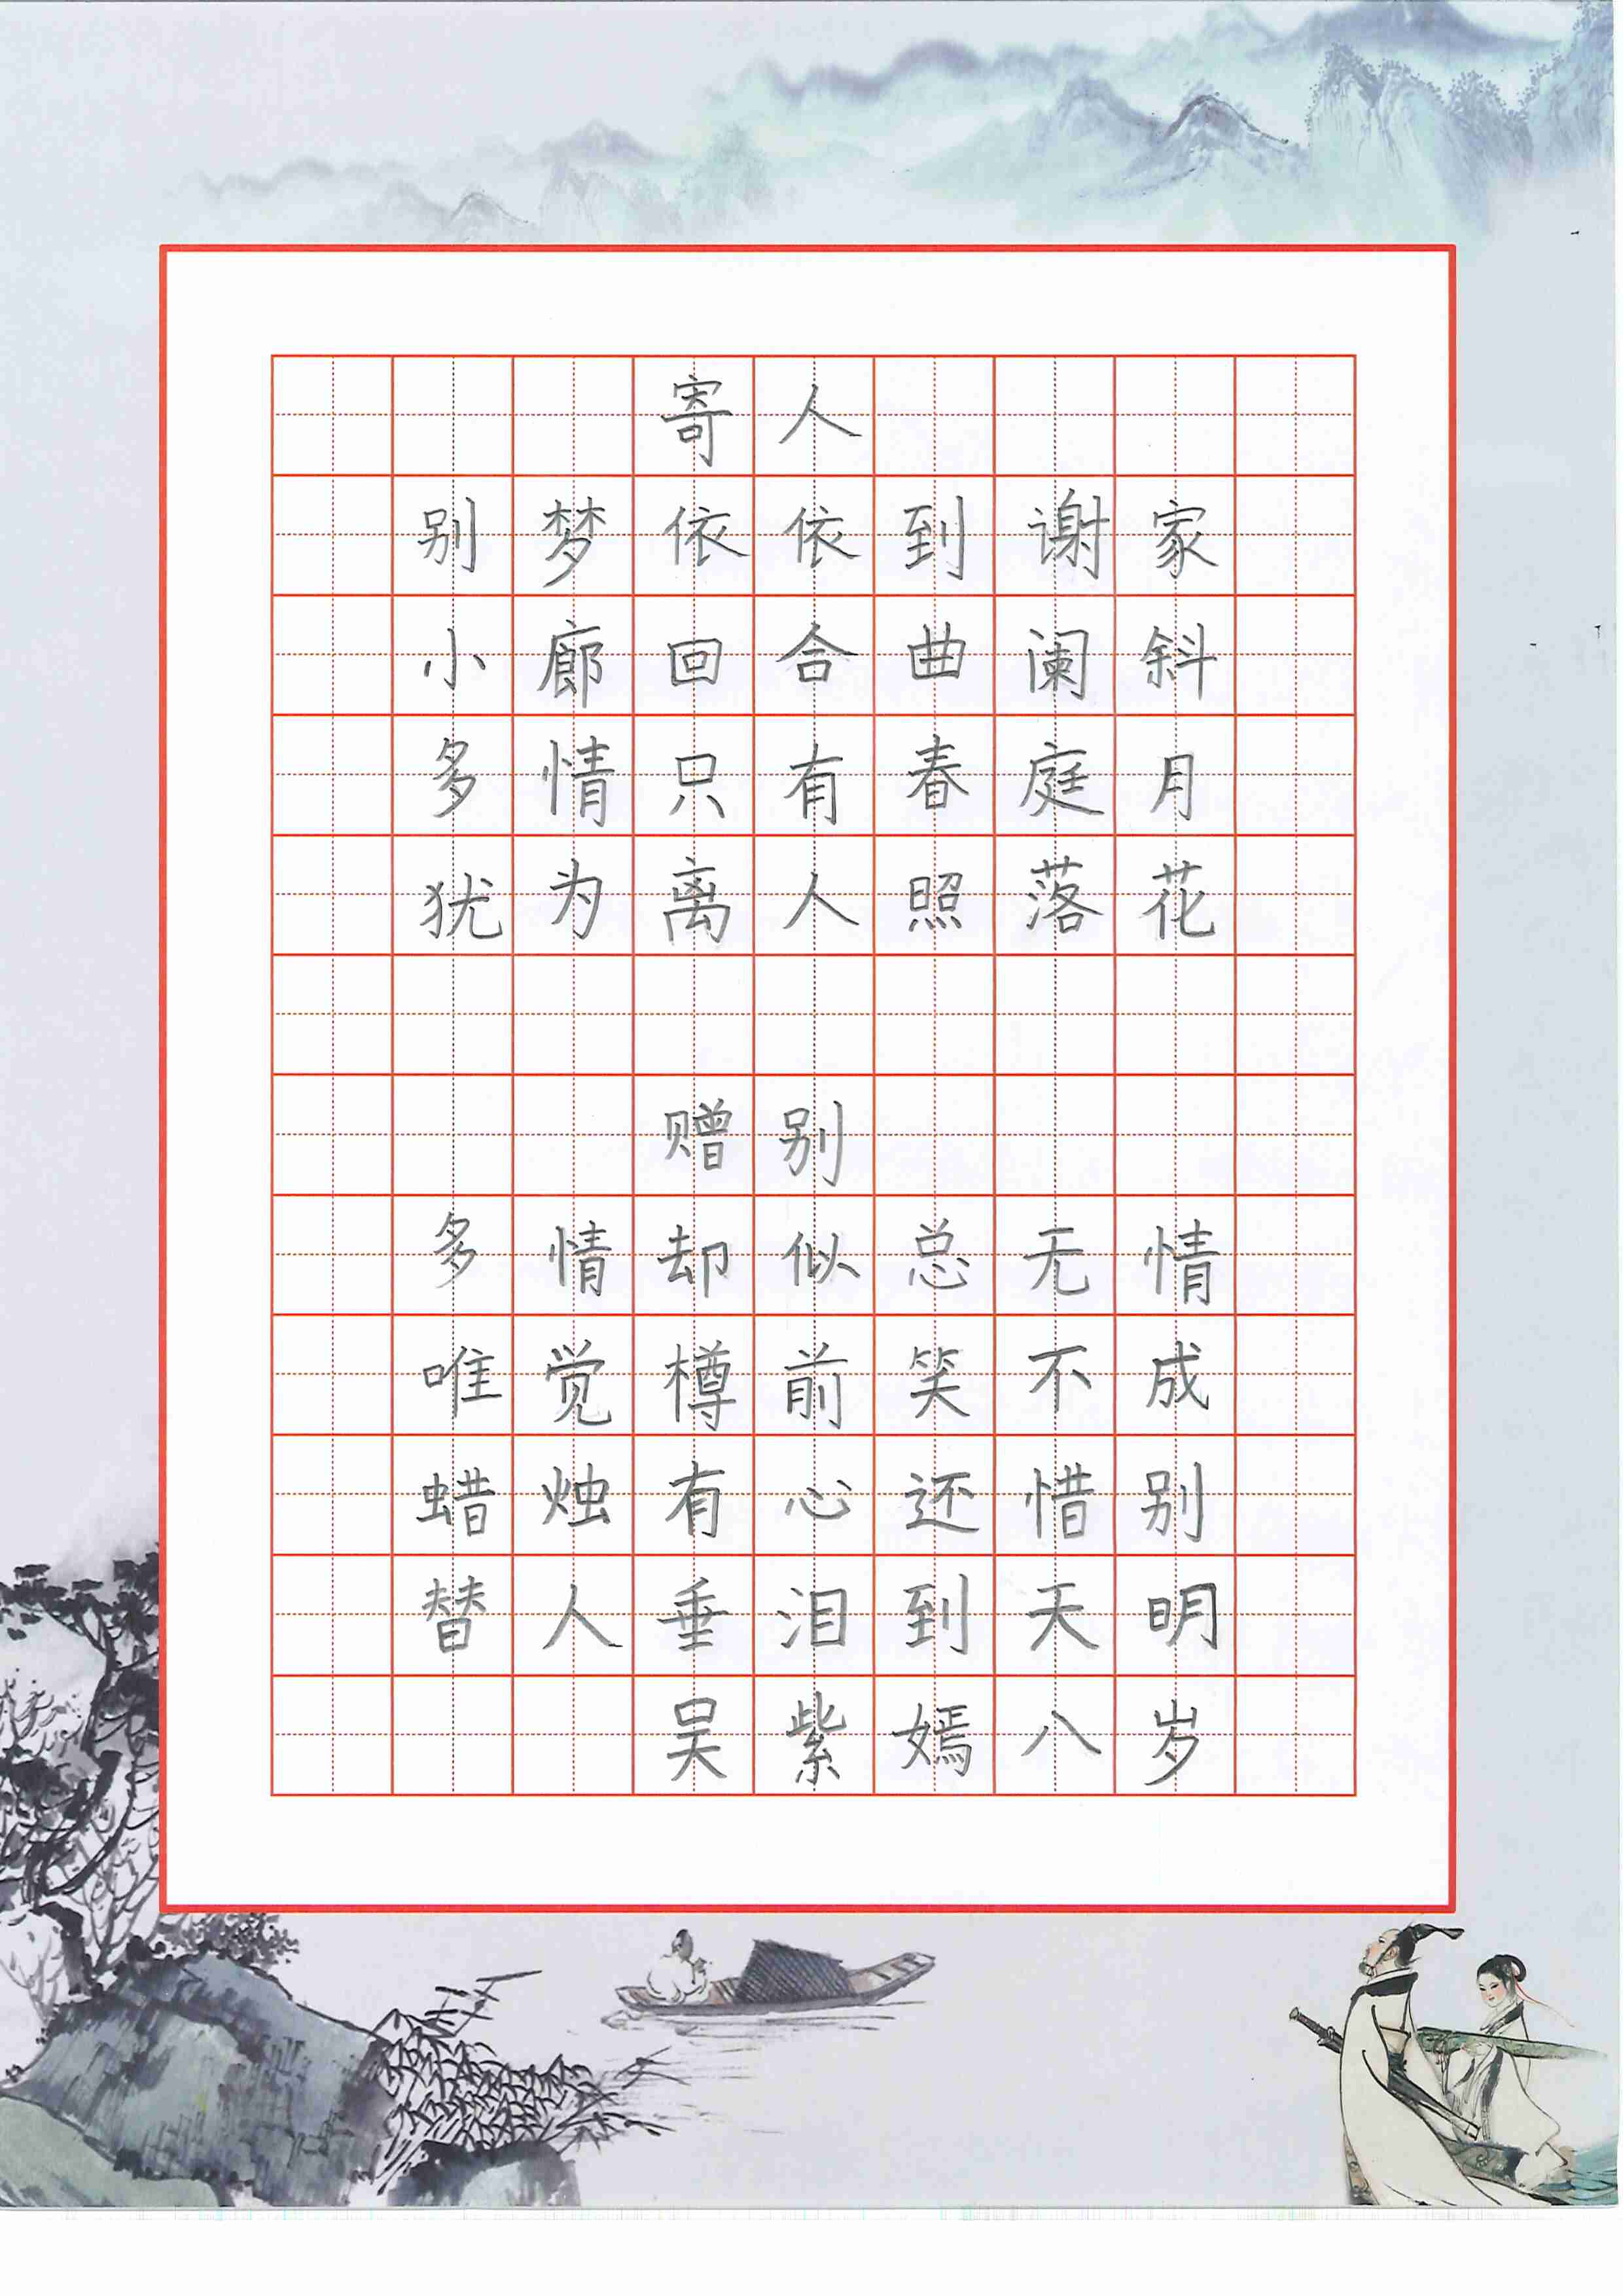 寄人
别梦依依到谢家
小廊回合曲阑斜
多情只有春庭月
犹为离人照落花
赠别
多情却似总无情
唯觉樽前笑不成
蜡烛有心还惜别
替人垂泪到天明
吴紫嫣八岁